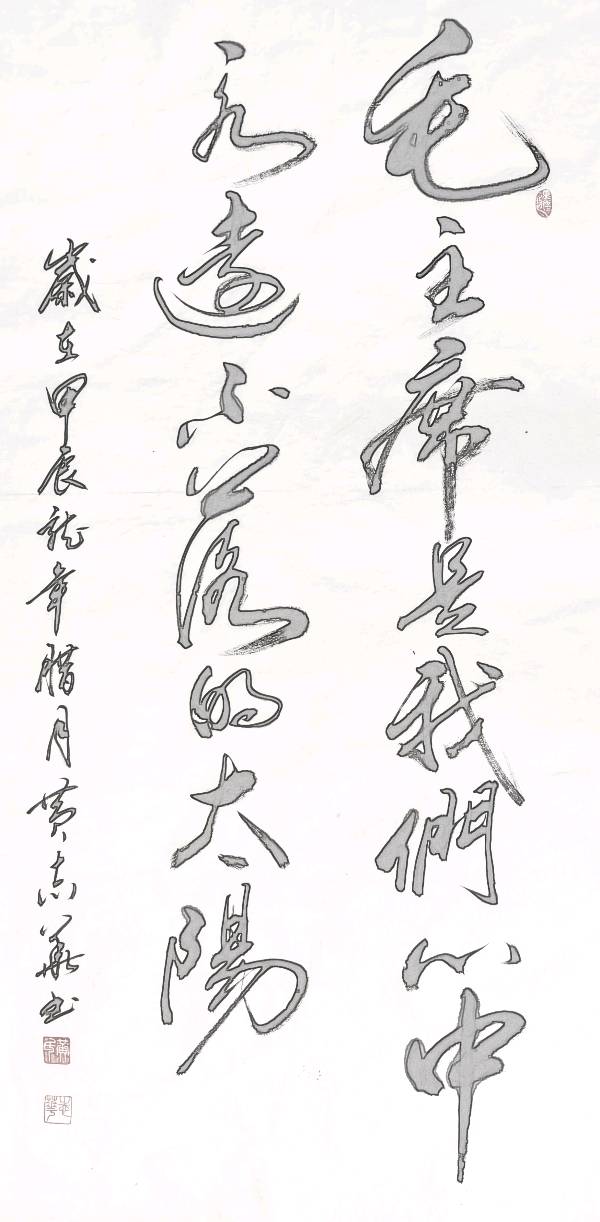 毛主席是我們心中
永遠不落的太陽
歲在甲辰龍年腊月黄志華书